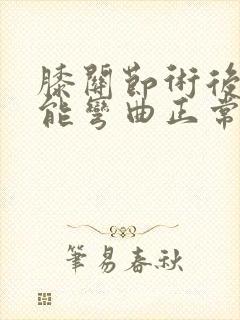 膝關節術後
能彎曲正常
筆易春秋